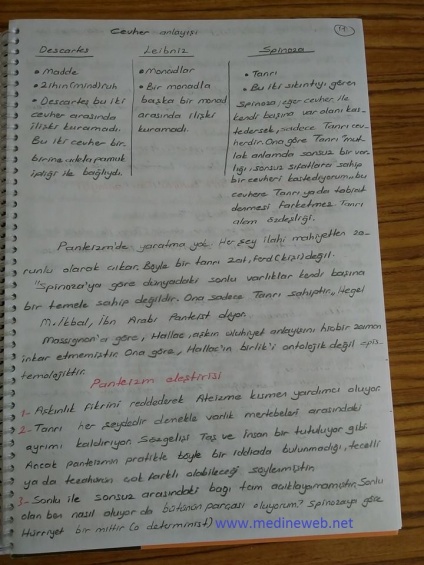 Cevher anlayışı
Descartes
• Madde
• Zihin (mind) ruh
• Descartes bu iki
cevher arasında
ilişki kuramadı.
Bu iki cevher bir-
birine adeta pamuk
ipliği ile bağlıydı.
Leibniz
• Monadlar
• Bir monadla
başka bir monad
arasında ilişki
kuramadı.
Spinoza
• Tanrı
• Bu iki sıkıntıyı gören
Spinoza, eğer cevher ile
kendi başına var olanı kas-
tedersek, sadece Tanrı cev-
herdir. Ona göre Tanrı "mut-
lak anlamda sonsuz bir var-
lığı, sonsuz sıfatlara sahip
bir cevheri kastediyorum.. bu
cevhere Tanrı ya da tabiat
denmesi farketmez. Tanrı
alem özdeşliği.
Panteizm'de yaratma yok. Her şey ilahi mahiyetten zo-
runlu olarak çıkar. Böyle bir tanrı zat, ferd (kişi) değil.
"Spinoza'ya göre dünyadaki sonlu varlıklar kendi başına
bir temele sahip değildir. Ona sadece Tanrı sahiptir." Hegel
M. İkbal, İbn Arabi Panteist diyor.
Massignon'a göre, Hallac, aşkın uluhiyet anlayışını hiçbir zaman
inkar etmemiştir. Ona göre, Hallac'ın birlik'i ontolojik değil epis-
temolojiktir.
Panteizm eleştirisi
1- Aşkınlık fikrini reddederek Ateizme kısmen yardımcı oluyor.
2- Tanrı her şeydedir demekle varlık mertebeleri arasındaki
ayrımı kaldırıyor. Sezgelişi Taş ve insan bir tutuluyor gibi.
Ancak panteizmin pratikte böyle bir iddiada bulunmadığı, tecelli
ya da tezahürün çok farklı olabileceği söylenmiştir.
3- Sonlu ile sonsuz arasındaki bağı tam açıklayamamıştır. Sonlu
olan ben nasıl oluyor da bütünün parçası oluyorum? Spinozaya göre
Hürriyet bir mittir (o determinist)
www.medineweb.net